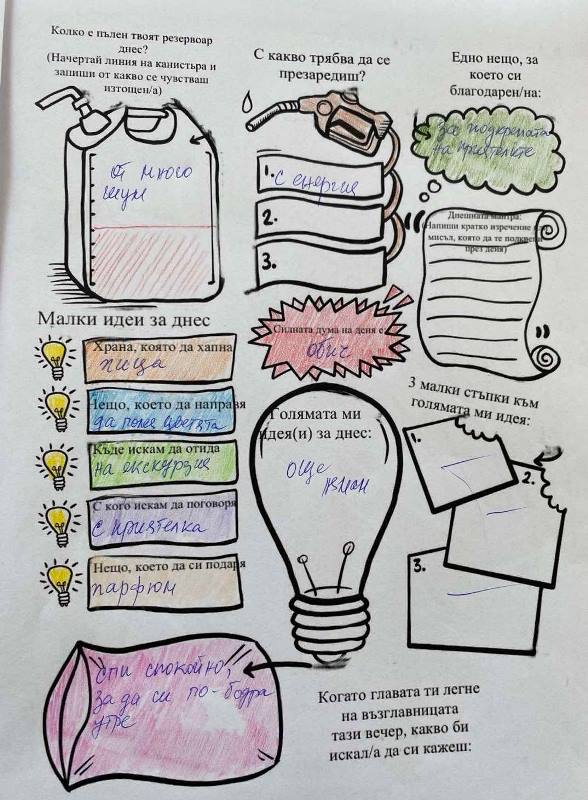 Колко е пълен твоят резервоар
днес?
(Начертай линия на канистъра и
запиши от какво се чувстваш
изтощен/а)
От много
шум
С какво трябва да се
презаредиш?
1. С енергия
2.
3.
Едно нещо, за
което си
благодарен/на:
За подкрепата
на приятелите
Днешната мантра:
(Напиши кратко изречение
мисъл, която да те подкрепи
през деня)
Малки идеи за днес
Храна, която да хапна
пица
Нещо, което да направя
да полея цветята
Къде искам да отида
на екскурзия
С кого искам да поговоря
с приятелка
Нещо, което да си подаря
парфюм
Силната дума на деня е:
обич
Голямата ми
идея(и) за днес:
още
нямам
3 малки стъпки към
голямата ми идея:
1.
2.
3.
спи спокойно,
за да си по-бодра
утре
Когато главата ти легне
на възглавницата
тази вечер, какво би
искал/а да си кажеш: